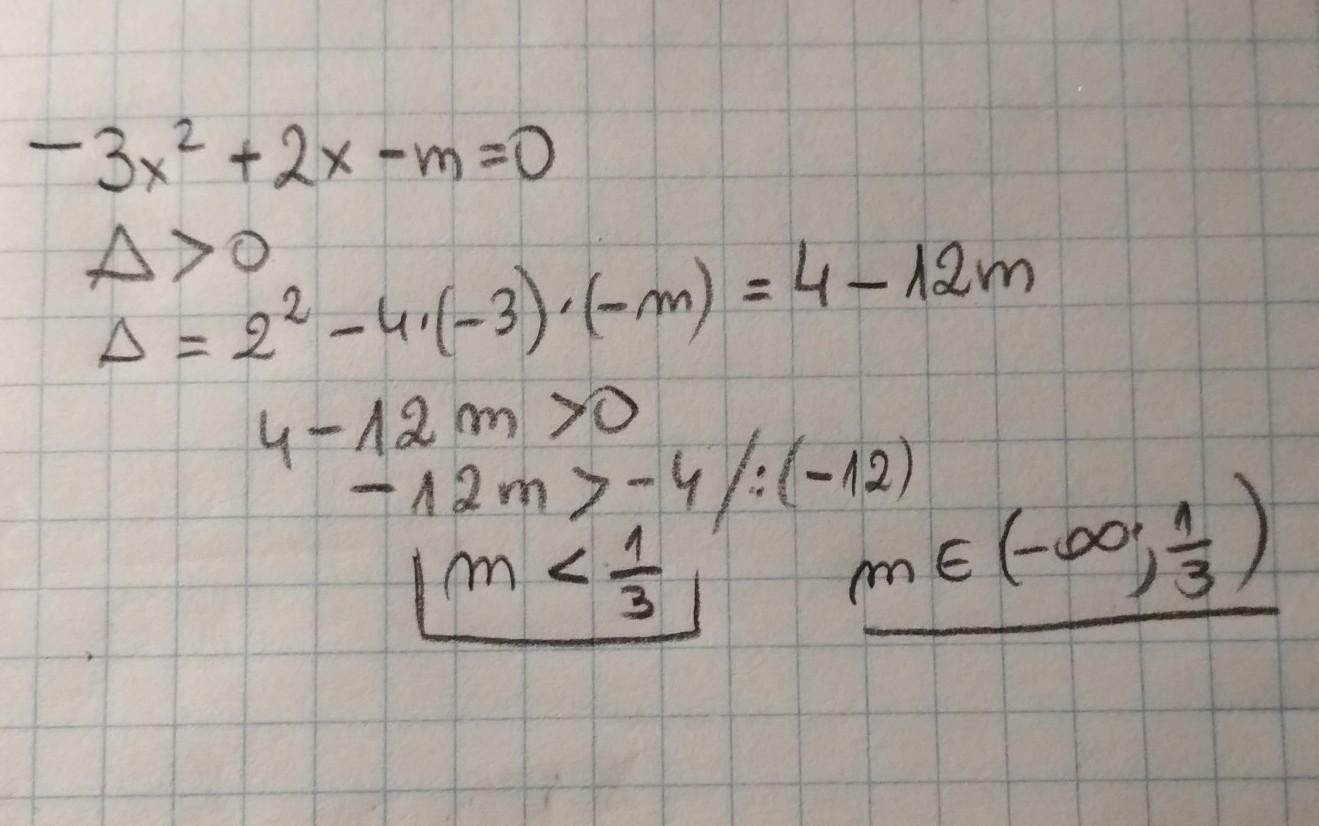 -3x² + 2x - m = 0
Δ > 0
Δ = 2² - 4·(-3)·(-m) = 4 - 12m
4 - 12m > 0
-12m > -4 /:(-12)
m < 1/3 m ∈ (-∞; 1/3)